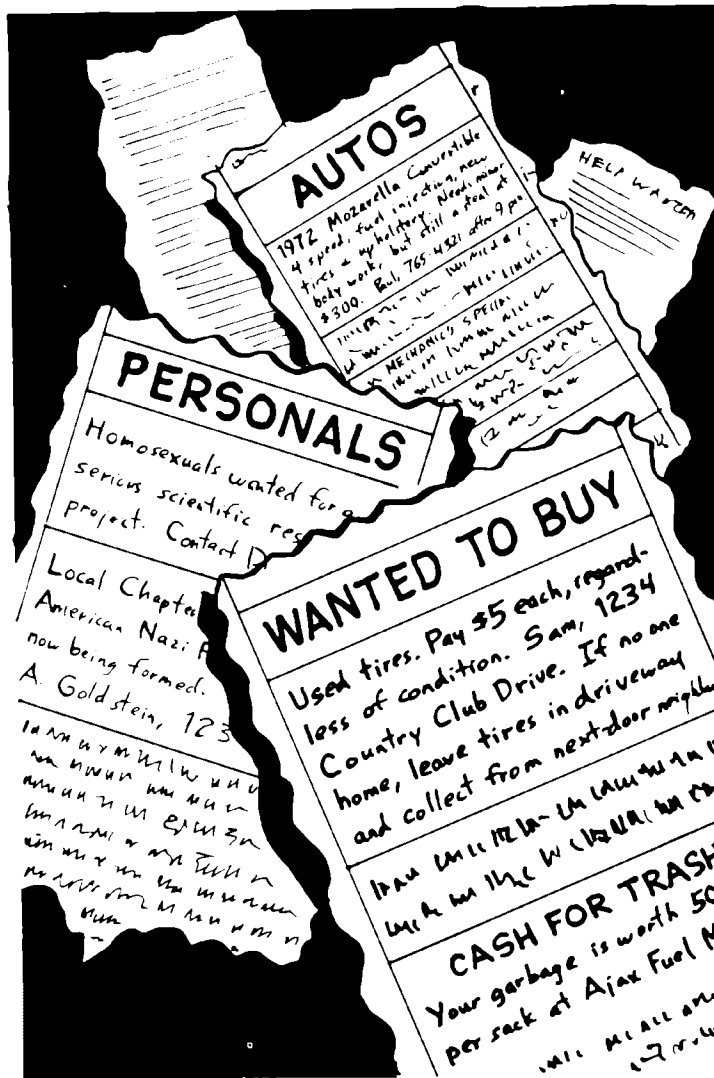 AUTOS
1972 Mozarella Convertible
4 speed, fuel injection, new
tires & upholstery. Needs minor
body work, but still a steal at
$300. Paul, 765-4321 after 9 pm
MECHANIC'S SPECIAL
HELP WANTED
PERSONALS
Homosexuals wanted for a
serious scientific res
project. Contact D
Local Chapte
American Nazi P
now being formed.
A. Goldstein, 123
WANTED TO BUY
Used tires. Pay $5 each, regard-
less of condition. Sam, 1234
Country Club Drive. If no one
home, leave tires in driveway
and collect from next-door neighb
CASH FOR TRASH
Your garbage is worth 50
per sack at Ajax Fuel M